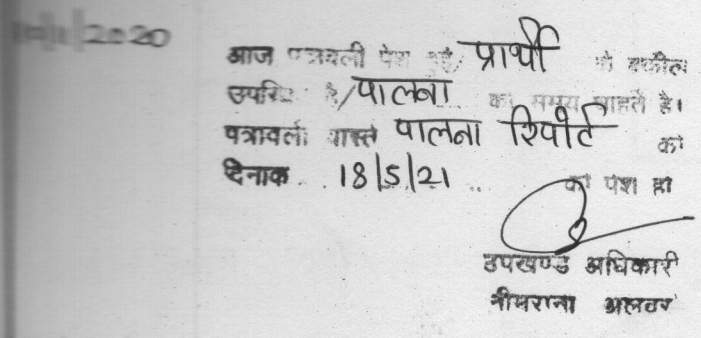 2020
आज पत्रावली पेश हुई/ प्रार्थी के वकील
उपस्थित है/पालना का समय चाहते है।
पत्रावली वास्ते पालना रिपोर्ट को
दिनाक .. 18/5/21 .. को पेश हो
उपखण्ड अधिकारी
नीमराना अलवर